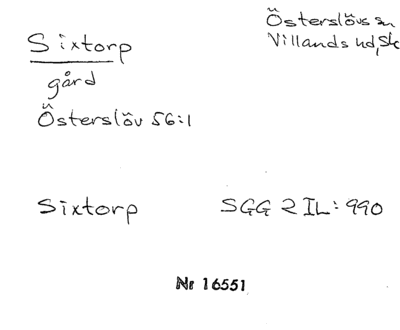 Sixtorp
gård
Österslöv 56:1
Österslövs sn
Villands hd, Sk
Sixtorp SGG 2 IL: 990
Nr 16551